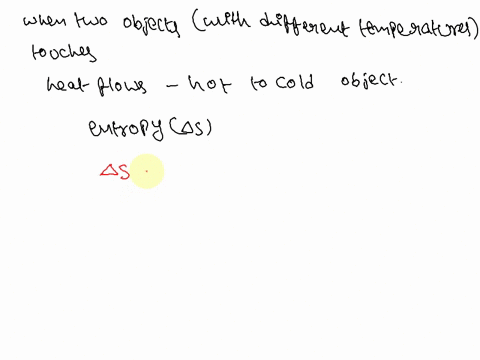 when two objects (with different temperatures)
touches
heat flows - hot to cold object.
entropy (ΔS)
ΔS